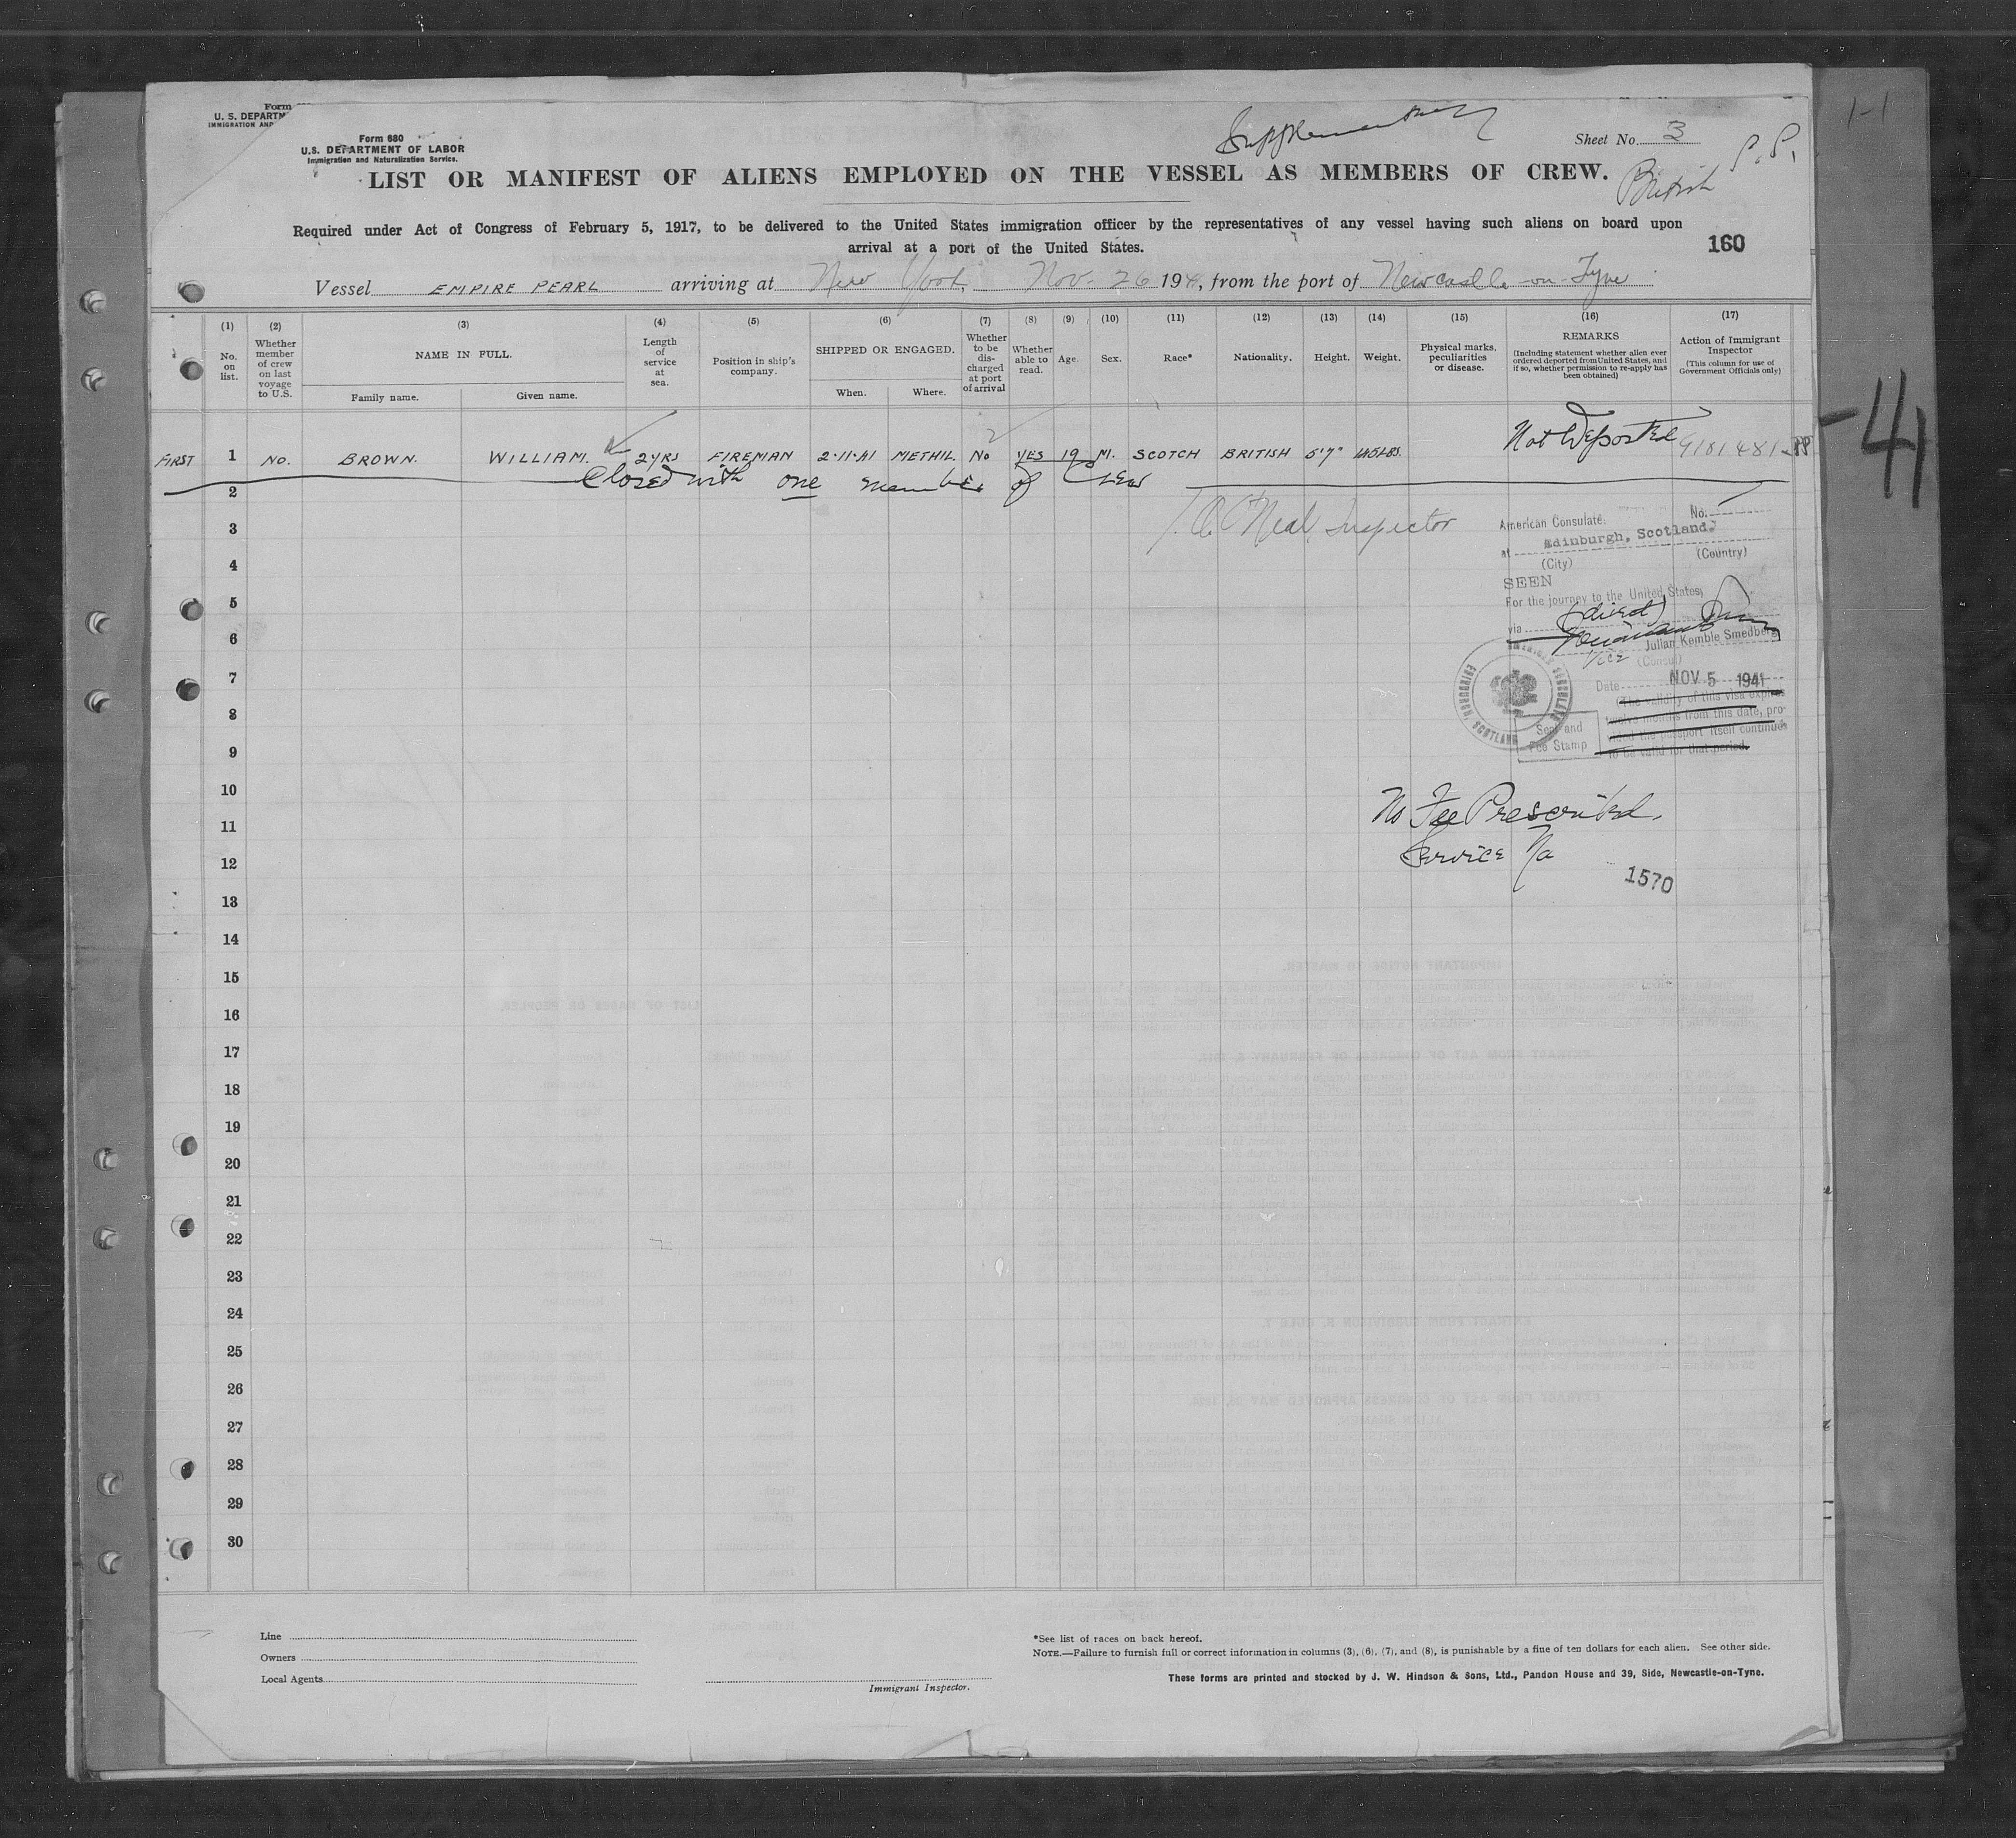 Form
U. S. DEPARTM
IMMIGRATION AND
Form 680
U.S. DEPARTMENT OF LABOR
Immigration and Naturalization Service.
Supplementary
Sheet No. 3
1-1
British S.S.
LIST OR MANIFEST OF ALIENS EMPLOYED ON THE VESSEL AS MEMBERS OF CREW.
Required under Act of Congress of February 5, 1917, to be delivered to the United States immigration officer by the representatives of any vessel having such aliens on board upon
arrival at a port of the United States.
160
Vessel EMPIRE PEARL arriving at New York, Nov. 26 1941, from the port of Newcastle-on-Tyne
(1) (2) (3) (4) (5) (6) (7) (8) (9) (10) (11) (12) (13) (14) (15) (16) (17)
No. on list.
Whether member of crew on last voyage to U.S.
NAME IN FULL.
Family name. Given name.
Length of service at sea.
Position in ship's company.
SHIPPED OR ENGAGED.
When. Where.
Whether to be dis- charged at port of arrival
Whether able to read.
Age.
Sex.
Race*
Nationality.
Height.
Weight.
Physical marks, peculiarities or disease.
REMARKS
(Including statement whether alien ever ordered deported from United States, and if so, whether permission to re-apply has been obtained)
Action of Immigrant Inspector
(This column for use of Government Officials only)
-41
FIRST 1 NO. BROWN. WILLIAM. 2 YRS FIREMAN 2.11.41 METHIL. NO YES 19 M. SCOTCH BRITISH 5'7" 145 LBS. Not Deported 9181481 PP
Closed with one member of Crew
2
3
O'Neal, Inspector
American Consulate. No.
at Edinburgh, Scotland.
(City) (Country)
4
SEEN
5
For the journey to the United States,
via (direct)
6
Julian Kemble Smedberg
Vice (Consul)
7
Date NOV 5 1941
AMERICAN CONSULATE
EDINBURGH, SCOTLAND
(The validity of this visa expires
twelve months from this date, pro-
vided the passport itself continues
to be valid for that period.
Seal and
Fee Stamp
8
9
10
No Fee Prescribed.
11
Service No
12
1570
13
14
15
16
17
18
19
20
21
22
23
24
25
26
27
28
29
30
Line
Owners
Local Agents
Immigrant Inspector.
*See list of races on back hereof.
NOTE.—Failure to furnish full or correct information in columns (3), (6), (7), and (8), is punishable by a fine of ten dollars for each alien. See other side.
These forms are printed and stocked by J. W. Hindson & Sons, Ltd., Pandon House and 39, Side, Newcastle-on-Tyne.